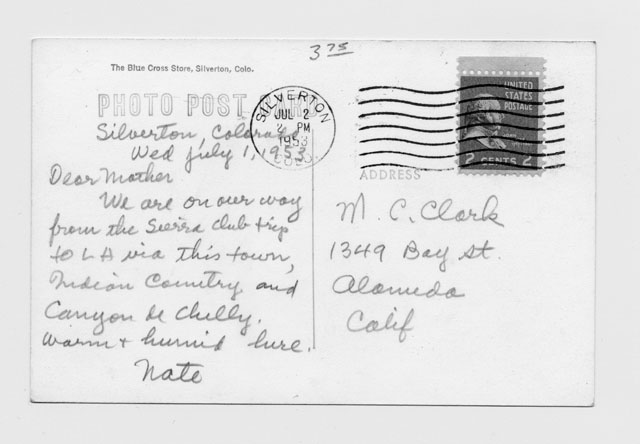 3 75
The Blue Cross Store, Silverton, Colo.
PHOTO POST CARD
SILVERTON
JUL 2
2 PM
1953
COLO.
UNITED
STATES
POSTAGE
2 CENTS 2
ADDRESS
Silverton, Colorado
Wed July 1, 1953
Dear Mother
We are on our way
from the Sierra Club trip
to LA via this town,
Indian Country and
Canyon de Chelly.
Warm + humid here.
Nate
M. C. Clark
1349 Bay St.
Alameda
Calif